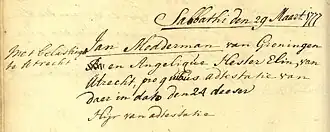 Sabbathi den 29 Maart 1777
met belasting
te Utrecht
Jan Modderman van Groningen
en Angelique Hester Elin, van
Utrecht, pro quibus adtestatie van
daer in dato den 24 deeser
Hijr van adtestatie